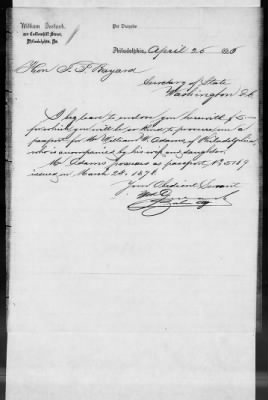 William
Callowhill Street,
Philadelphia, Pa.
Philadelphia, April 25
Hon T. F. Bayard
Secretary of State
Washington D.C.
I beg leave to enclose you herewith $5—
for which you will be so kind to procure me a
passport for Mr William W. Adams of Philadelphia,
who is accompanied by his wife and daughter.
Mr. Adams possesses as passport,
issued in March 28. 1878.
Your Obedient Servant